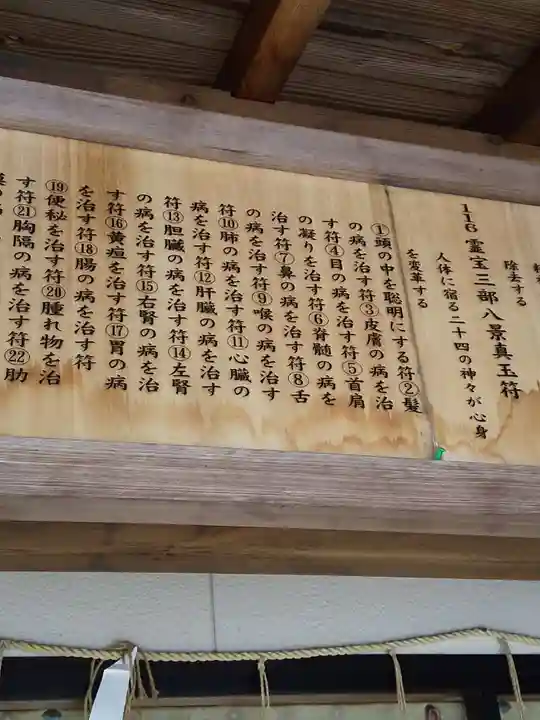 除去する
116 霊宝三部八景真玉符
人体に宿る二十四の神々が心身
を変革する
①頭の中を聡明にする符②髪
の病を治す符③皮膚の病を治
す符④目の病を治す符⑤首肩
の凝りを治す符⑥脊髄の病を
治す符⑦鼻の病を治す符⑧舌
の病を治す符⑨喉の病を治す
符⑩肺の病を治す符⑪心臓の
病を治す符⑫肝臓の病を治す
符⑬胆臓の病を治す符⑭左腎
の病を治す符⑮右腎の病を治
す符⑯黄疸を治す符⑰胃の病
を治す符⑱腸の病を治す符
⑲便秘を治す符⑳腫れ物を治
す符㉑胸隔の病を治す符㉒肋